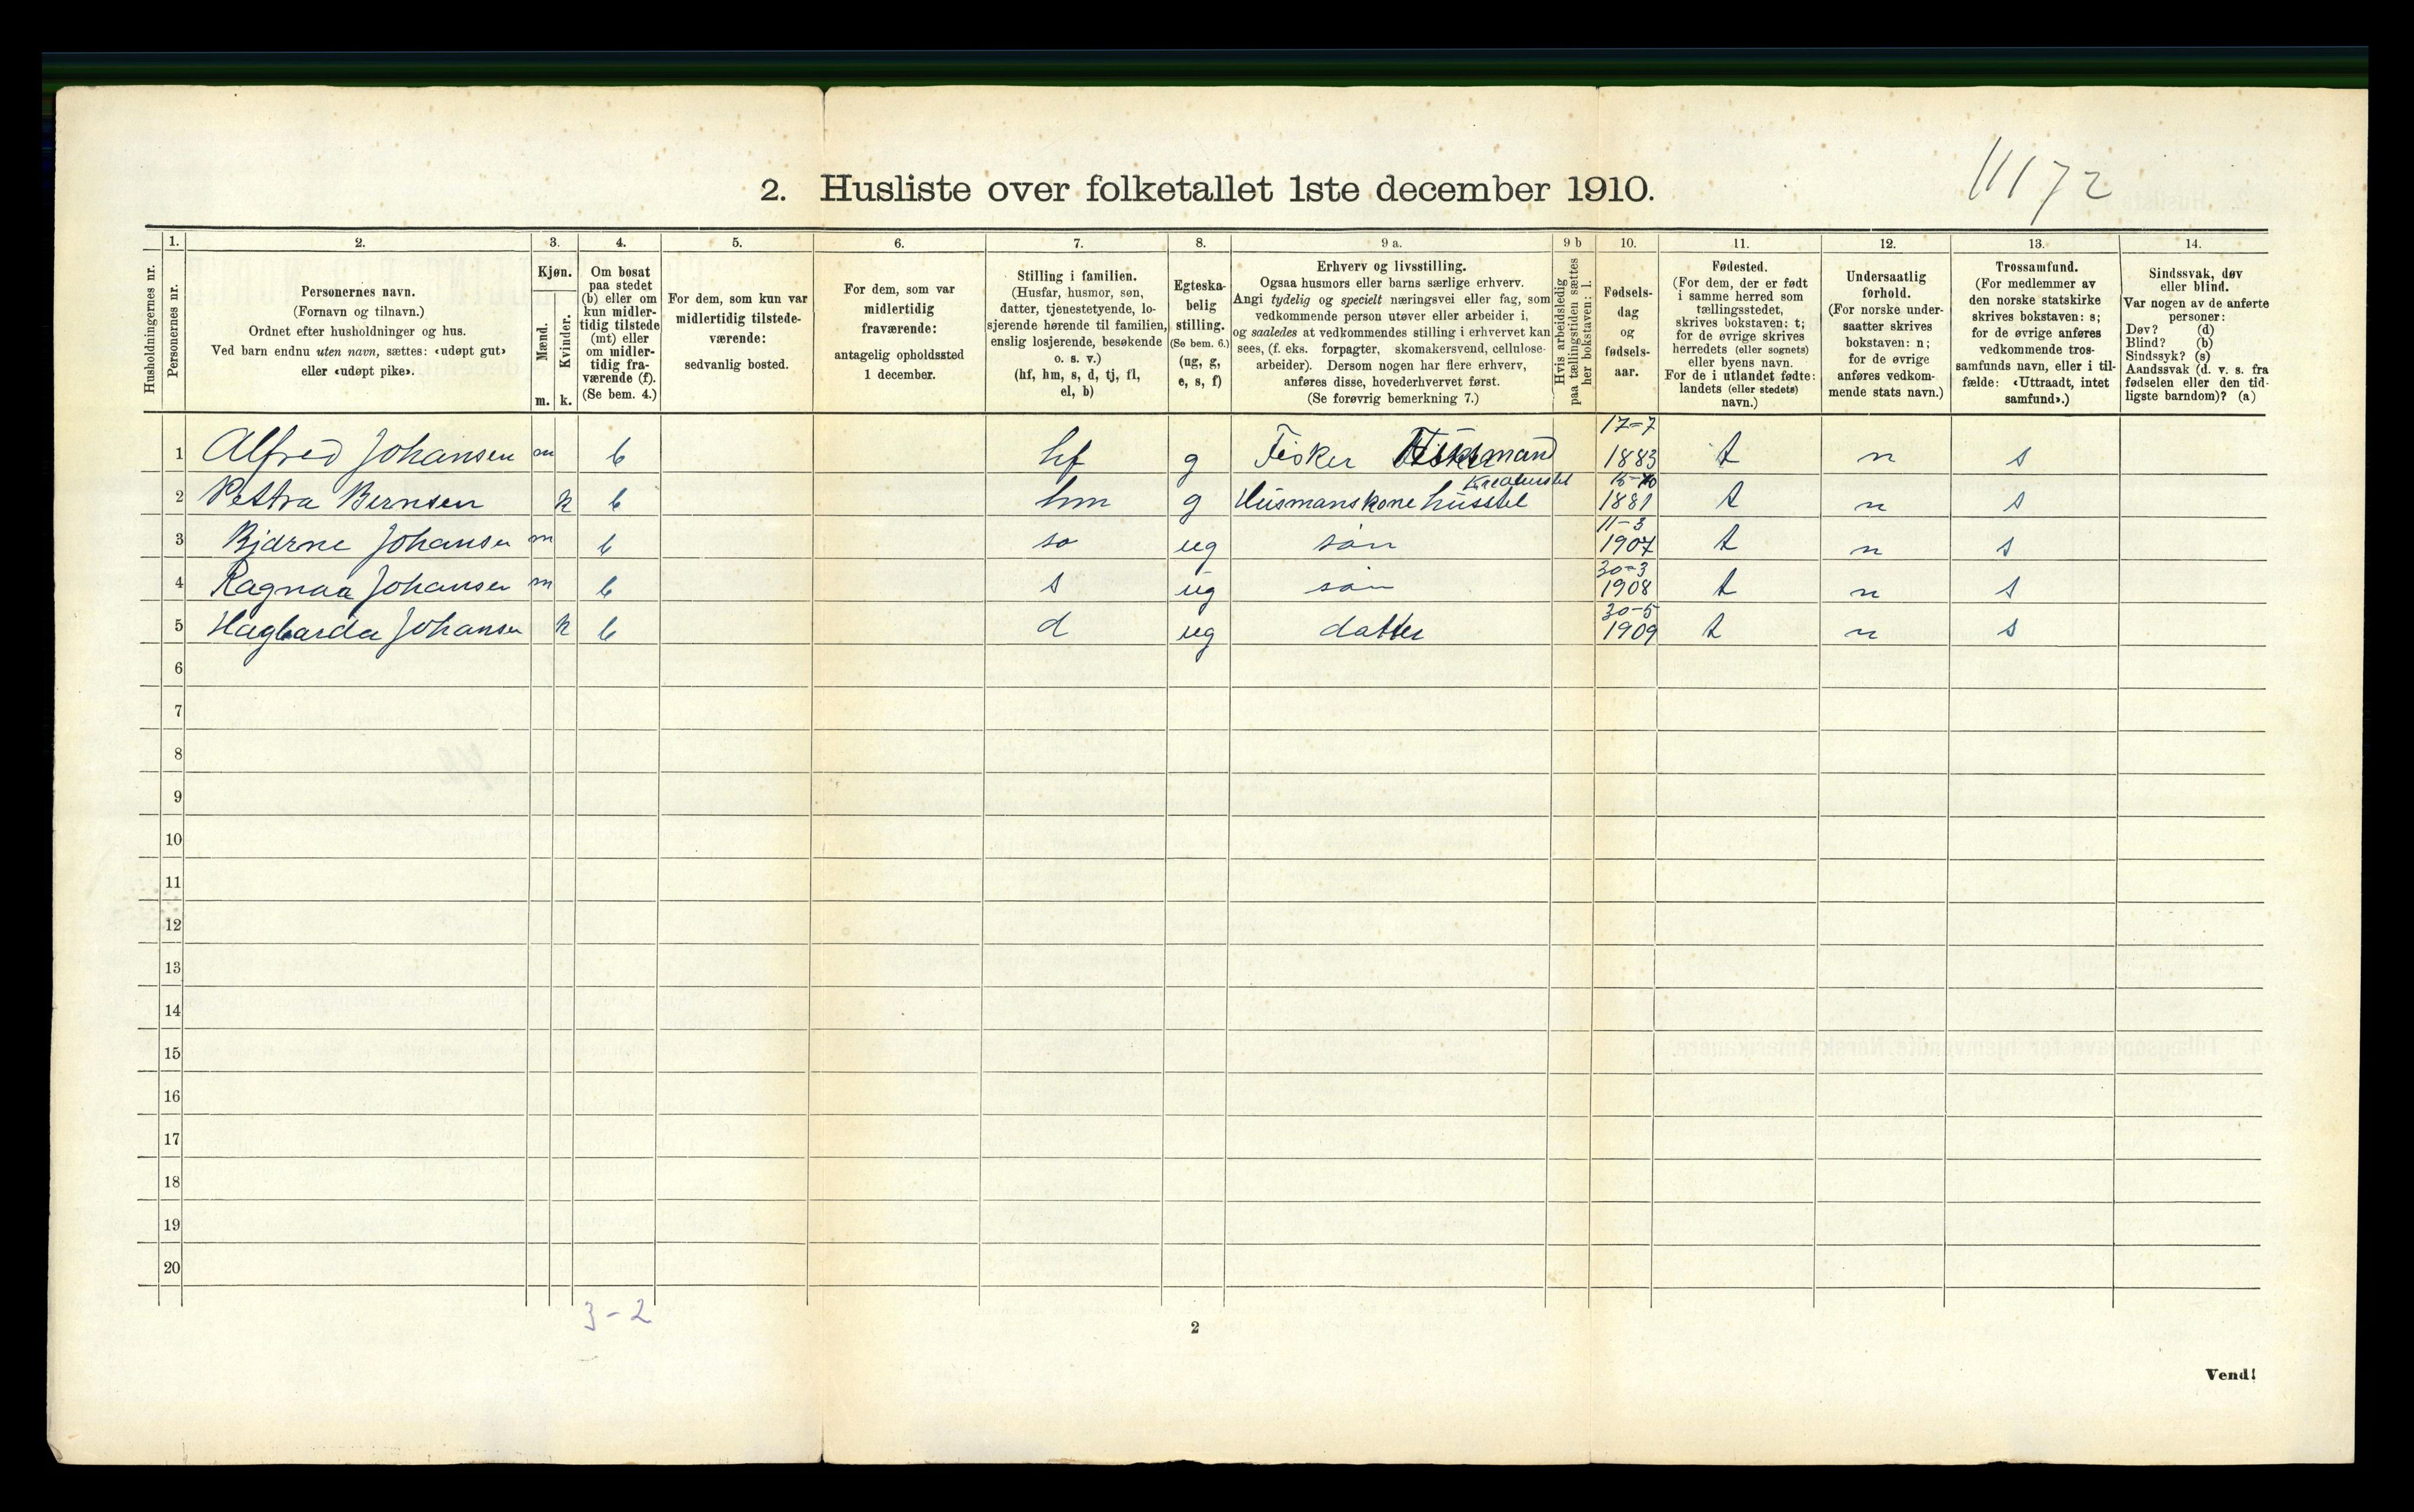 11172
2. Husliste over folketallet 1ste december 1910.
Husholdningernes nr.
1.
Personernes nr.
2.
Personernes navn.
(Fornavn og tilnavn.)
Ordnet efter husholdninger og hus.
Ved barn endnu uten navn, sættes: «udøpt gut»
eller «udøpt pike».
3.
Kjøn.
Mænd.
Kvinder.
m. k.
4.
Om bosat
paa stedet
(b) eller om
kun midler-
tidig tilstede
(mt) eller
om midler-
tidig fra-
værende (f).
(Se bem. 4.)
5.
For dem, som kun var
midlertidig tilstede-
værende:
sedvanlig bosted.
6.
For dem, som var
midlertidig
fraværende:
antagelig opholdssted
1 december.
7.
Stilling i familien.
(Husfar, husmor, søn,
datter, tjenestetyende, lo-
sjerende hørende til familien,
enslig losjerende, besøkende
o. s. v.)
(hf, hm, s, d, tj, fl,
el, b)
8.
Egteska-
belig
stilling.
(Se bem. 6.)
(ug, g,
e, s, f)
9 a.
Erhverv og livsstilling.
Ogsaa husmors eller barns særlige erhverv.
Angi tydelig og specielt næringsvei eller fag, som
vedkommende person utøver eller arbeider i,
og saaledes at vedkommendes stilling i erhvervet kan
sees, (f. eks. forpagter, skomakersvend, cellulose-
arbeider). Dersom nogen har flere erhverv,
anføres disse, hovederhvervet først.
(Se forøvrig bemerkning 7.)
9 b
Hvis arbeidsledig
paa tællingstiden sættes
her bokstaven: l.
10.
Fødsels-
dag
og
fødsels-
aar.
11.
Fødested.
(For dem, der er født
i samme herred som
tællingsstedet,
skrives bokstaven: t;
for de øvrige skrives
herredets (eller sognets)
eller byens navn.
For de i utlandet fødte:
landets (eller stedets)
navn.)
12.
Undersaatlig
forhold.
(For norske under-
saatter skrives
bokstaven: n;
for de øvrige
anføres vedkom-
mende stats navn.)
13.
Trossamfund.
(For medlemmer av
den norske statskirke
skrives bokstaven: s;
for de øvrige anføres
vedkommende tros-
samfunds navn, eller i til-
fælde: «Uttraadt, intet
samfund».)
14.
Sindssvak, døv
eller blind.
Var nogen av de anførte
personer:
Døv? (d)
Blind? (b)
Sindssyk? (s)
Aandssvak (d. v. s. fra
fødselen eller den tid-
ligste barndom)? (a)
17-7
1 Alfred Johansen m b hf g Fisker 1883 t n s
Kreaturstel
2 Petra Bernsen k b hm g Husmanskone husstel 1881 t n s
11-3
3 Bjarne Johansen m b so ug sön 1907 t n s
30-3
4 Ragnaa Johansen m b s ug sön 1908 t n s
30-5
5 Hagbarda Johansen k b d ug datter 1909 t n s
6
7
8
9
10
11
12
13
14
15
16
17
18
19
20
3-2
2
Vend!